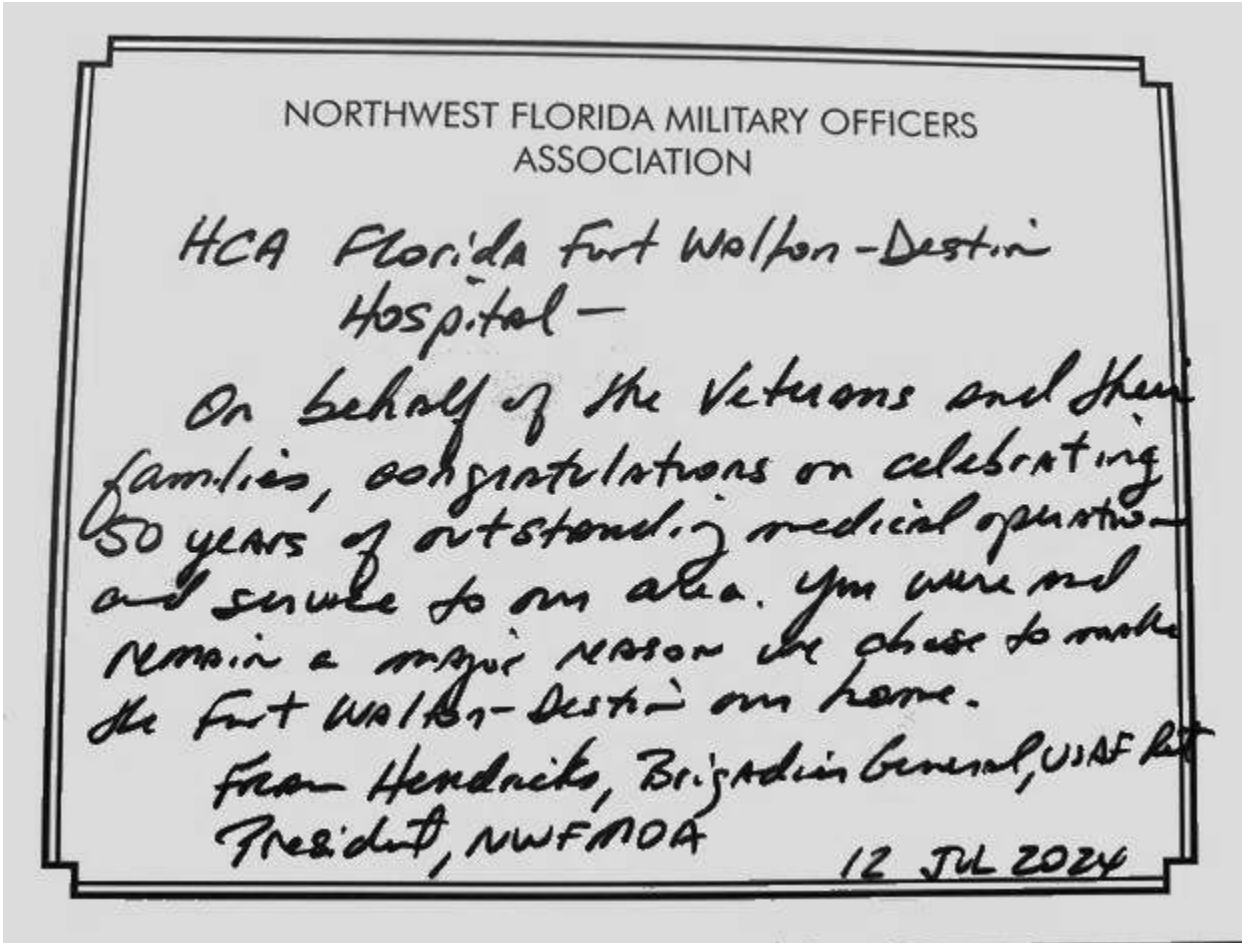 NORTHWEST FLORIDA MILITARY OFFICERS
ASSOCIATION
HCA Florida Fort Walton-Destin
Hospital —
On behalf of the Veterans and their
families, congratulations on celebrating
50 years of outstanding medical operation
and service to our area. You were and
remain a major reason we chose to make
the Fort Walton-Destin our home.
Fran Hendricks, Brigadier General, USAF Ret
President, NWFMOA
12 JUL 2024